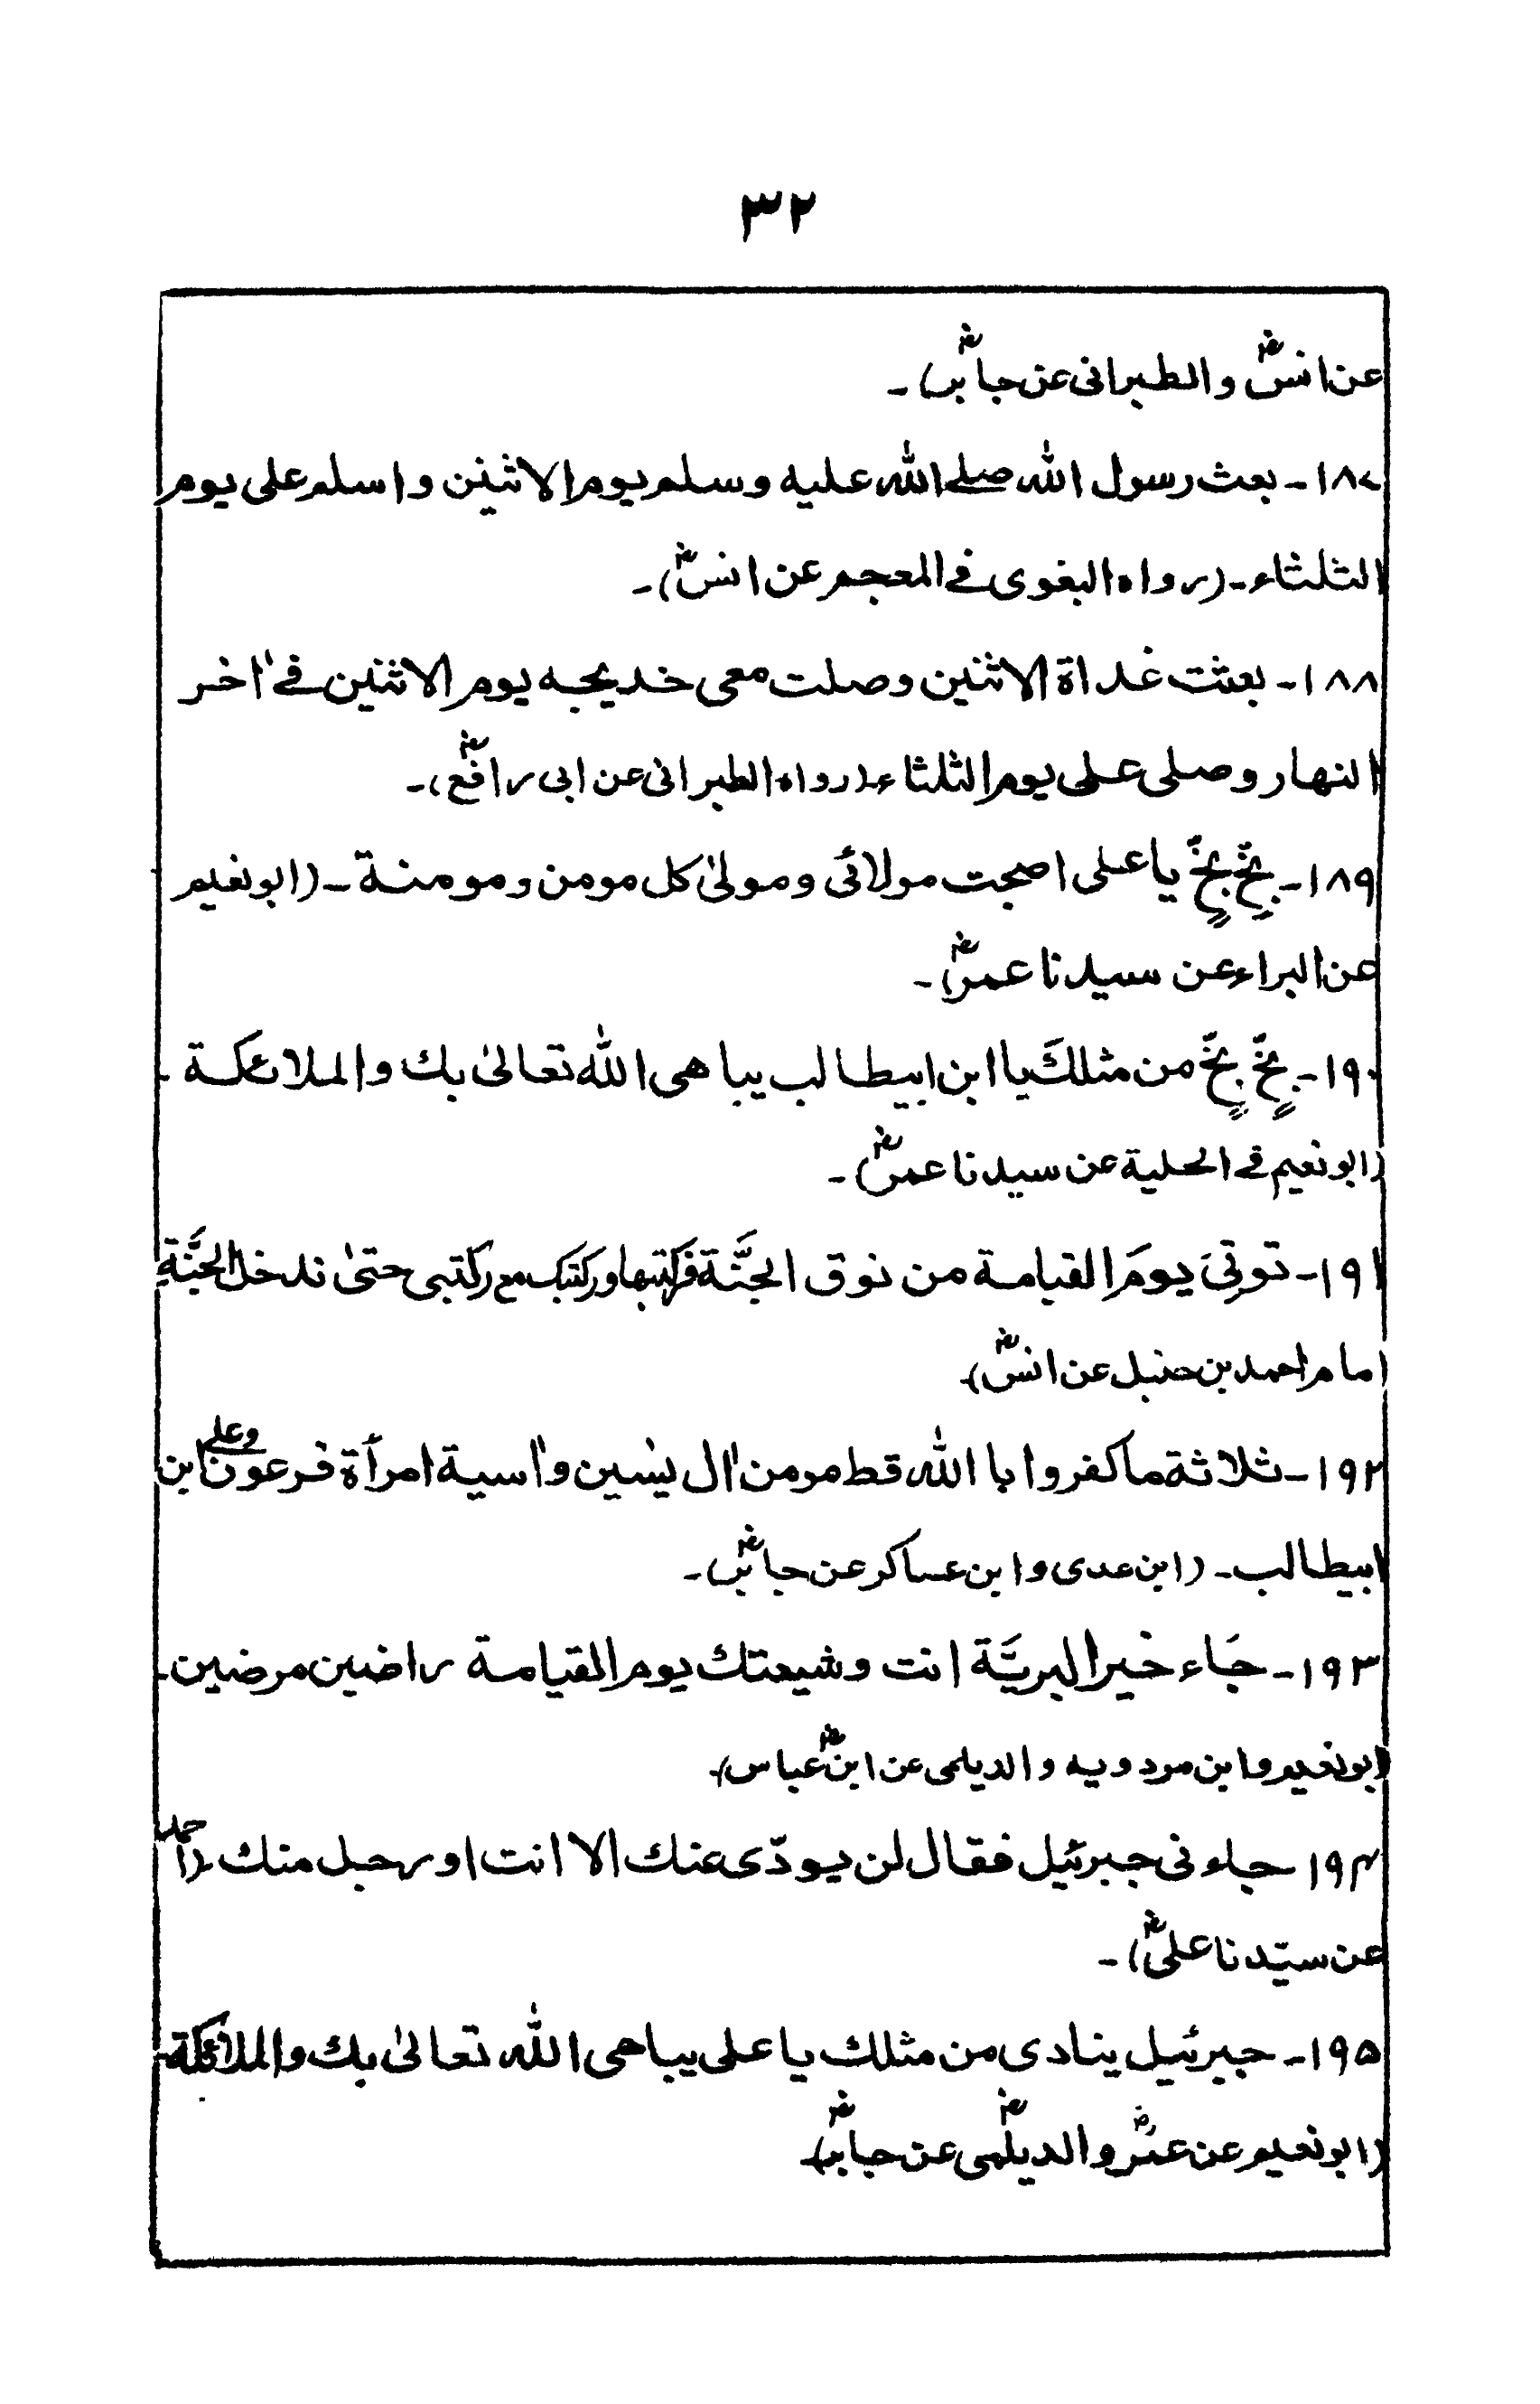 ٣٢
عن انسؓ والطبرانی عن جابرؓ)۔
١٨٧۔ بعث رسول اللّٰه صلے اللّٰه علیه وسلم یوم الاثنین واسلم علی یوم
الثلثاء۔(رواه البغوی فے المعجم عن انسؓ)۔
١٨٨۔ بعثت غداة الاثنین وصلت معی خدیجه یوم الاثنین فے اٰخر
النهار وصلی علی یوم الثلثاء (رواه الطبرانی عن ابی رافعؓ)۔
١٨٩۔ بَخٍّ بَخٍّ یا علی اصبحت مولائی ومولیٰ کل مومن ومومنة۔(ابونعیم
عن البراء عن سیدنا عمرؓ)۔
١٩٠۔ بَخٍّ بَخٍّ من مثلكَ یا ابن ابیطالب یباهی اللّٰه تعالیٰ بك والملائکة۔
(ابونعیم فے الحلیة عن سیدنا عمرؓ)۔
١٩١۔ توتِیَ یومَ القیامة من نوق الجَنَّة فرکبتها ورکبتك مع رکبتی حتیٰ ندخل الجَنَّةِ
امام احمد بن حنبل عن انسؓ)۔
١٩٢۔ ثلاثة ما کفروا با اللّٰه قط مومن اٰل یٰسین واٰسیة امرأة فرعون وعلی ابن
ابیطالب۔ (ابن عدی وابن عساکر عن جابرؓ)۔
١٩٣۔ جَاء خیر البریَّة انت وشیعتك یوم القیامة راضین مرضین۔
(ابونعیم وابن مردویه والدیلمی عن ابنؓ عباس)۔
١٩٤ جاء نی جبرئیل فقال لن یودّی عنك الا انت او رجل منك۔(احمد
عن سیّدنا علیؓ)۔
١٩٥۔ جبرئیل ینادی من مثلك یا علی یباهی اللّٰه تعالیٰ بك والملائکة۔
(ابونعیم عن عمرؓ والدیلمیؓ عن جابرؓ)۔